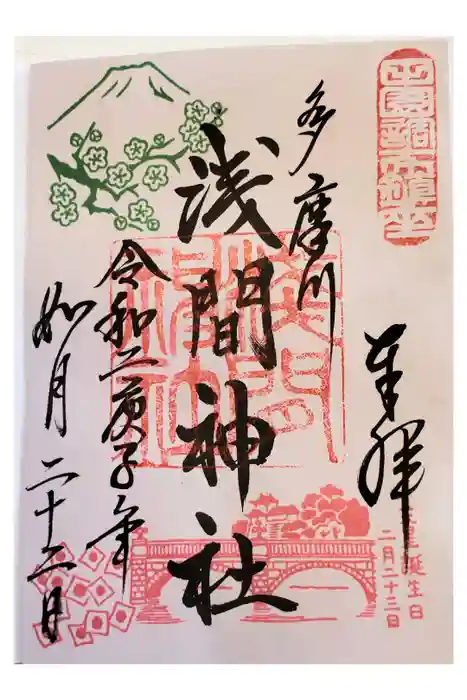 奉拝
天皇誕生日
二月二十三日
多摩川
浅間神社
令和二庚子年
如月二十三日